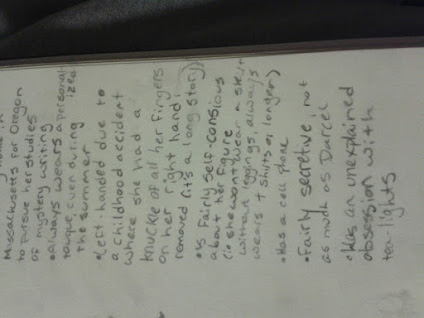 home in
Massachusetts for Oregon
to pursue her studies
of mystery writing
•always wears a personal
ized
touque, even during
the summer
•left-handed due to
a childhood accident
where she had a
knuckle of all her fingers
on her right hand
removed (it's a long story)
•Is Fairly self-consious
about her figure
(ie she won't wear a skirt
without leggings, always
wears t shirts or longer)
•Has a cell phone
•Fairly secretive, not
as much as Darcel
•Has an unexplained
obsession with
tea-lights